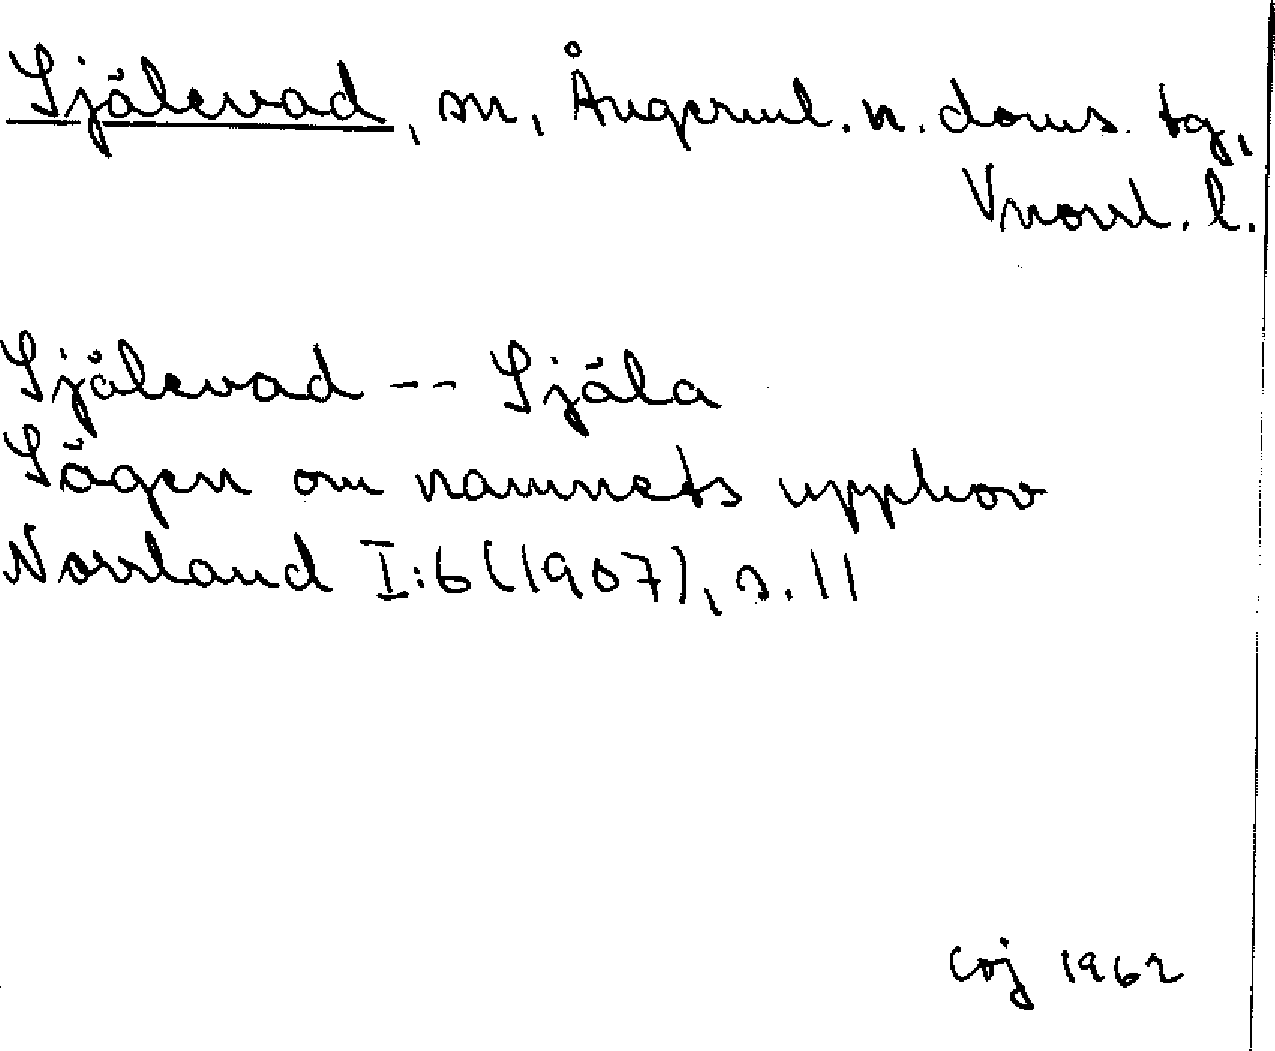 Själevad, sn, Ångerml. n. doms. tg,
Vnorrl. l.
Själevad -- Själa
Sägen om namnets upphov
Norrland I:6 (1907), s. 11